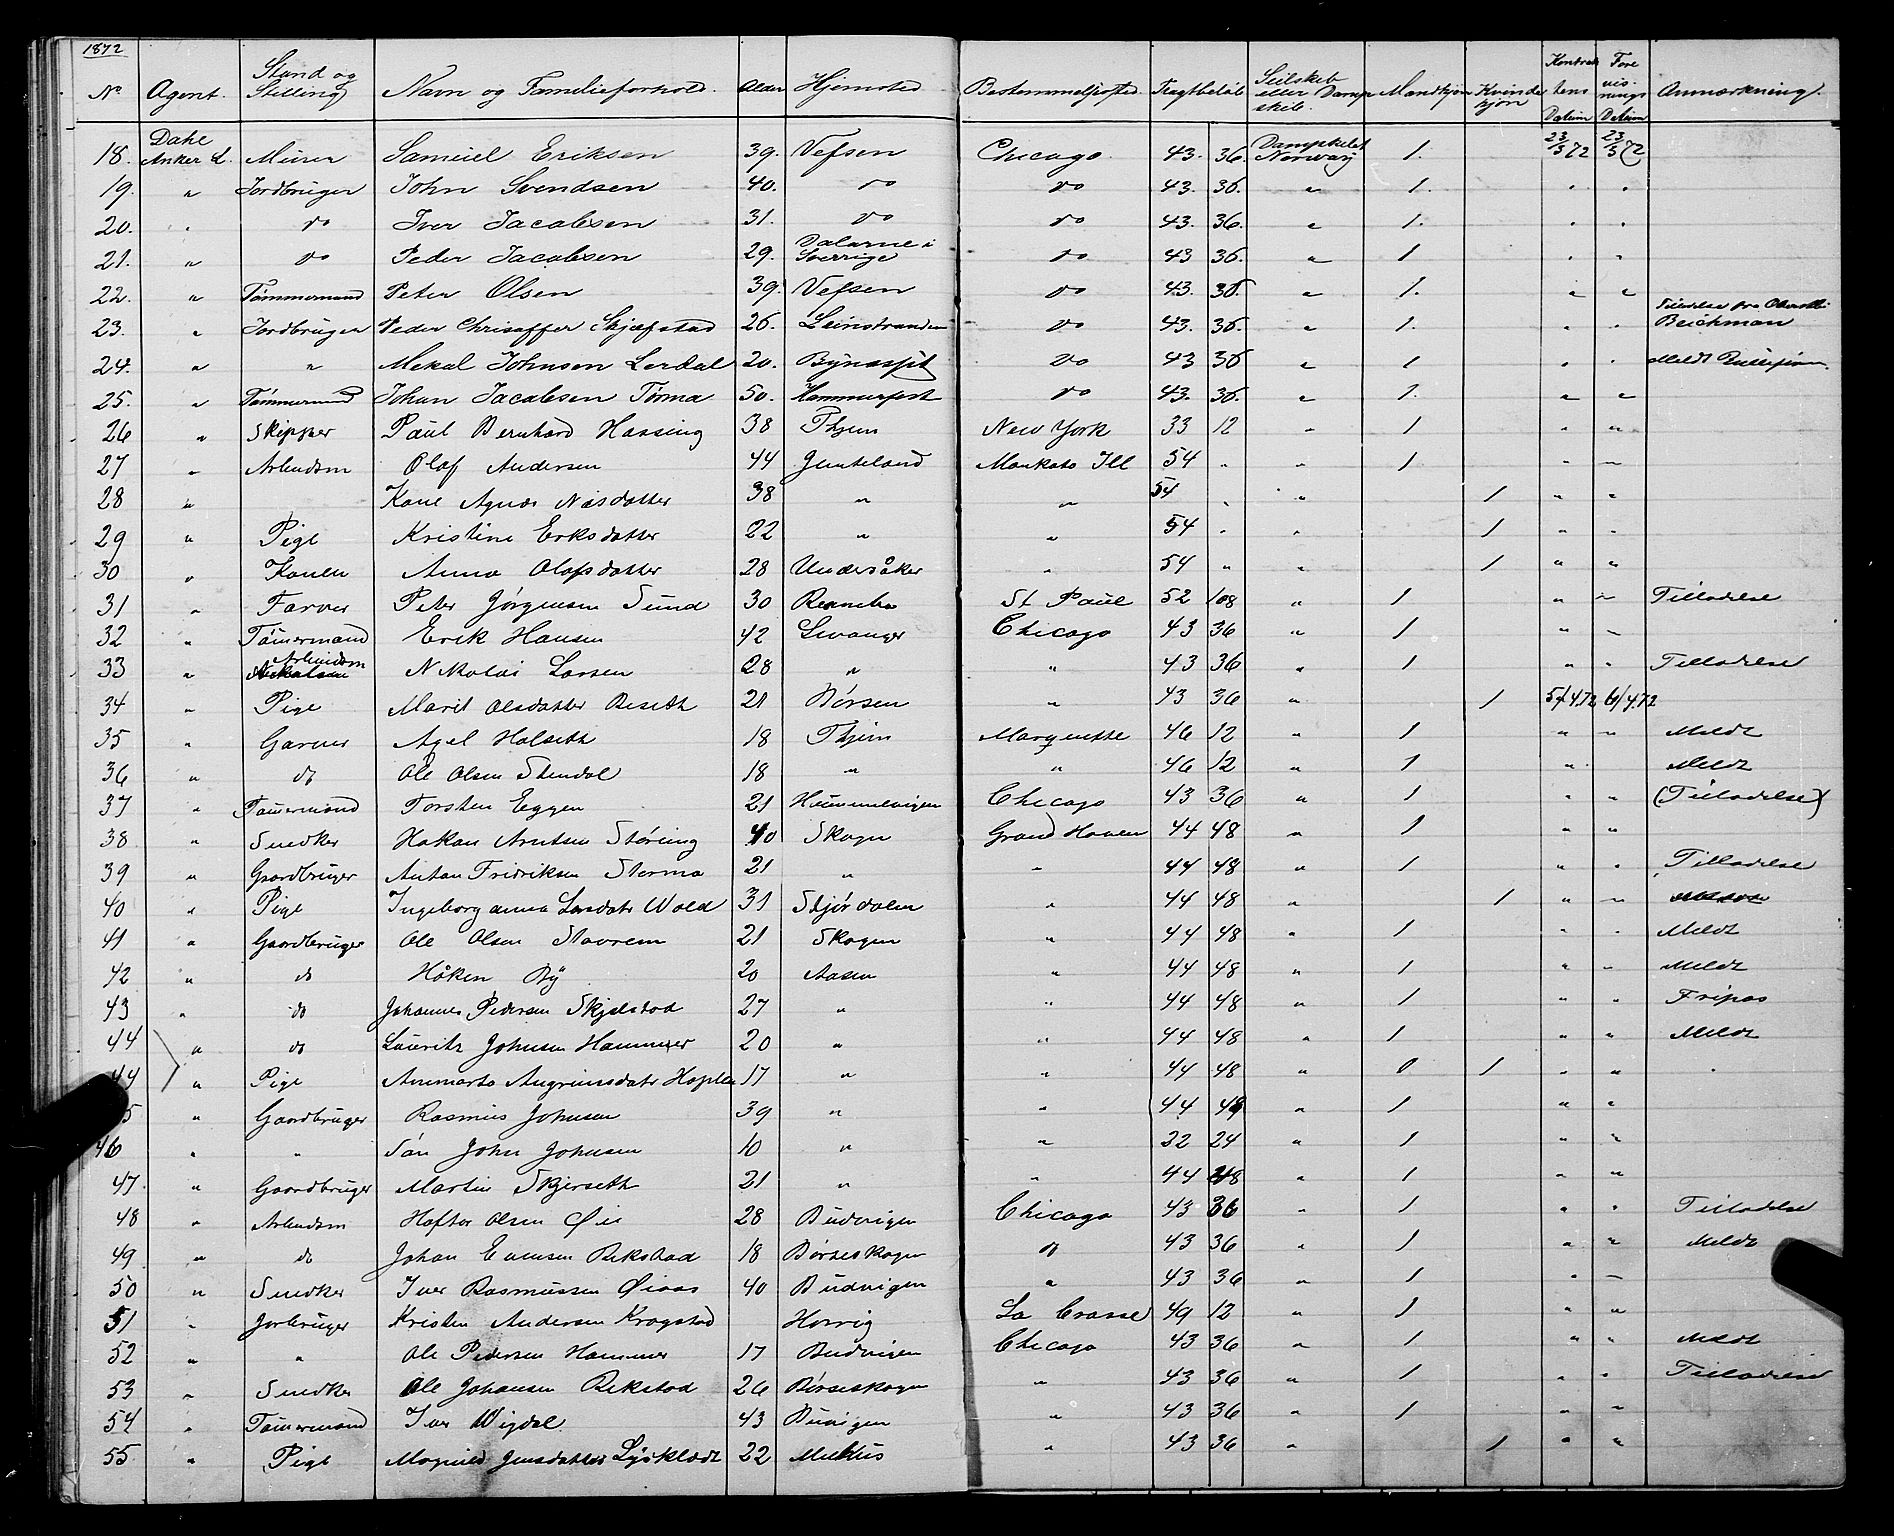 1872
No Agent. Stand og Stilling Navn og Familieforhold. Alder Hjemsted Bestemmelsested Fragtbeløb Seilskib eller Dampskib. Mandkjøn Kvindekjøn Kontraktens Datum Forevisnings Datum Anmærkning.
18. Dahl Anker L. Murer Samuel Eriksen 39. Vefsen Chicago. 43. 36. Dampskibet Norway 1. 23/3 72 23/3 72
19. " Jordbruger John Svendsen 40. do do 43. 36. " 1. " "
20. " do Iver Jacobsen 31. do do 43. 36. " 1. " "
21. " do Peder Jacobsen 29. Dalarne i Sverrige do 43 36. " 1 " "
22. " Tømmermand Peter Olsen 39. Vefsen do 43. 36. " 1. " "
23. " Jordbruger Peder Chrisoffer Skjefstad 26. Leinstranden do 43. 36. " 1. " " Tilladelse fra Oberstl. Beichman
24. " " Mekal Johnsen Lerdal 20. Bynæsset do 43 36 " 1 " " Meldt
25. " Tømmermand Johan Jacobsen Tørma 50. Hammerfest do 43. 36. " 1. " "
26 " Skipper Paul Bernhard Hassing 38 Thjem New York 33 12 " 1 " "
27 " Arbeidsm Olaf Andersen 44 Jemteland Mankato Ill 54 " " 1 " "
28 " Kone Agnes Nilsdatter 38 " " 54 " " 1 " "
29 " Pige Kristine Eriksdatter 22 " " 54 " " 1 " "
30 " Konen Anna Olofsdatter 28 Undersåker " 54 " " 1 " "
31 " Farver Peter Jørgensen Sund 30 Rennebu St. Paul 52 108 " 1 " " Tilladelse
32 " Tømermand Erik Hansen 42 Levanger Chicago 43 36 " 1 " "
33 " Arbeidsm Nikolai Larsen 28 " " 43 36 " 1 " " Tilladelse
34 " Pige Marit Olsdatter Beseth 21 Børsen " 43 36 " 1 5/4.72 6/4.72
35 " Garver Axel Holseth 18 Thjem Marquette 46 12 " 1 " " Meldt
36 " do Ole Olsen Stendal 18 " " 46 12 " 1 " Meldt
37 " Tømermand Torsten Eggen 21 Hummelvigen Chicago 43 36 " 1 " " (Tilladelse)
38 " Snedker Hakon Arntsen Støring 40 Skogn Grand Haven 44 48 " 1 " "
39 " Gaardbruger Anton Fridriksen Stormo 21 " " 44 48 " 1 " " Tilladelse
40 " Pige Ingeborganna Larsdatr Wold 31 Stjørdalen " 44 48 " 1 " "
41 " Gaardbruger Ole Olsen Stavrem 21 Skogen " 44 48 " 1 " " Meldt
42 " do Håken By 20 Aasen " 44 48 " 1 " " Meldt
43 " do Johannes Pedersen Skjelstad 27 " " 44 48 " 1 " " Fripas
44 " do Lauritz Johnsen Hammer 20 " " 44 48 " 1 " " Meldt
44 " Pige Annmarta Angrimsdatr Hoplen 17 " " 44 48 " 0 1 " " "
5 " Gaardbruger Rasmus Johnsen 39 " " 44 48 " 1 " "
46 " " Søn John Johnsen 10 " " 22 24 " 1 " "
47 " Gaardbruger Martin Skjerseth 21 " " 44 48 " 1 " "
48 " Arbeidsm Hafter Olsen Øie 28 Budvigen Chicago 43 36 " 1 " " Tilladelse
49 " do Johan Evensen Rekstad 18 Børseskogn do 43 36 " 1 " " Meldt
50 " Snedker Iver Rasmussen Øiaas 40 Budvigen " 43 36 " 1 " "
51 " Jorbruger Kristen Andersen Krogstad Horrig La Crosse 49 12 " 1 " "
52 " " Ole Pedersen Hammer 17 Budvigen Chicago 43 36 " 1 " " Meldt
53 " Snedker Ole Johansen Rekstad 26 Børseskogn " 43 36 " 1 " " Tilladelse
54 " Tømermand Iver Wigdal 43 Buvigen " 43 36 " 1 " "
55 " Pige Magnild Jensdatter Lysklædt 22 Melhus " 43 36 " 1 " "